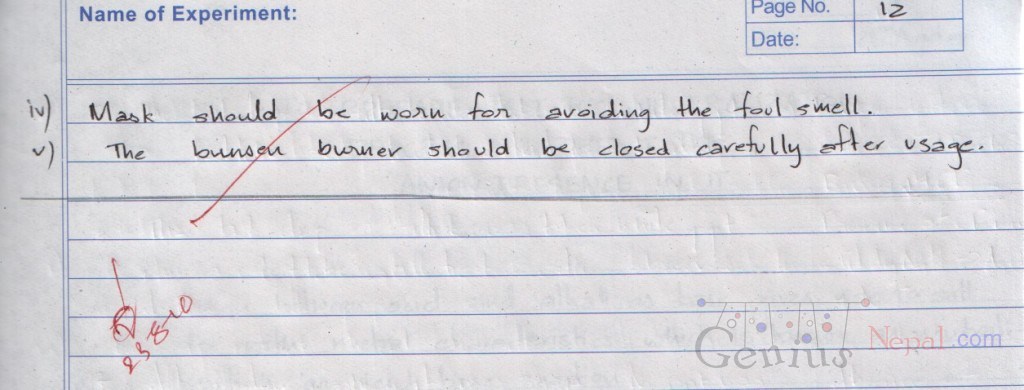 Name of Experiment:
Page No. 12
Date:
iv) Mask should be worn for avoiding the foul smell.
v) The bunsen burner should be closed carefully after usage.
Genius Nepal.com